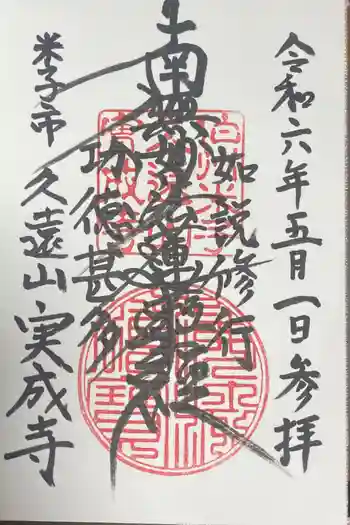 令和六年五月一日参拝
如説修行
南無妙法蓮華経
功徳甚多
米子市 久遠山 実成寺